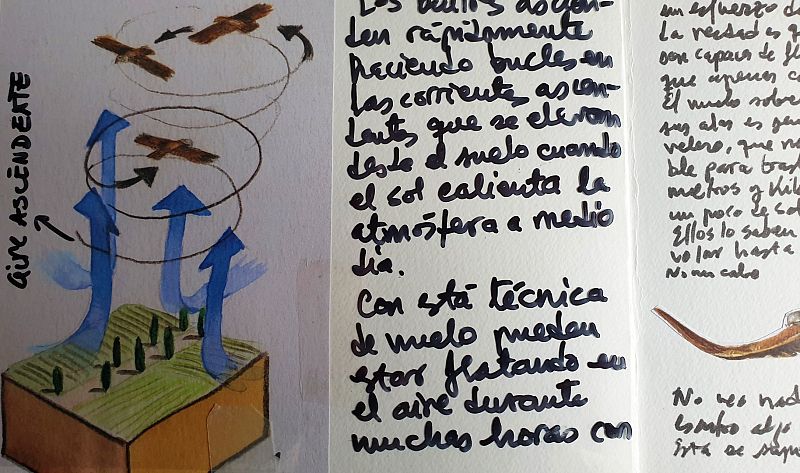 aire ASCENDENTE
Los buitres ascien-
den rápidamente
haciendo bucles en
las corrientes ascen-
dentes que se elevan
desde el suelo cuando
el sol calienta la
atmósfera a medio
dia.
Con está técnica
de vuelo pueden
estar flotando en
el aire durante
muchas horas con
un esfuerzo d
La verdad es q
son capaces de
que apenas
El vuelo sobre
sus alas es
velero, que
ble para
metros y kil
un poco de sol
Ellos lo saben
volar hasta
No
esta se